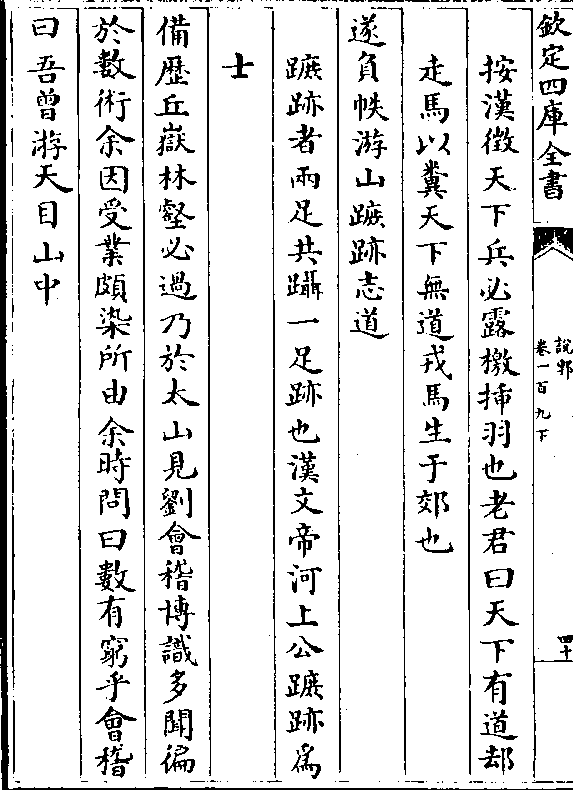 欽定四庫全書
說郛
卷一百九下
四十
按漢徴天下兵必露檄揷羽也老君曰天下有道却
走馬以糞天下無道戎馬生于郊也
遂負帙游山蹠跡志道
蹠跡者兩足共躡一足跡也漢文帝河上公蹠跡為
士
備歴丘嶽林壑必過乃於太山見劉會稽博識多聞徧
於數術余因受業頗染所由余時問曰數有窮乎會稽
曰吾曾游天目山中